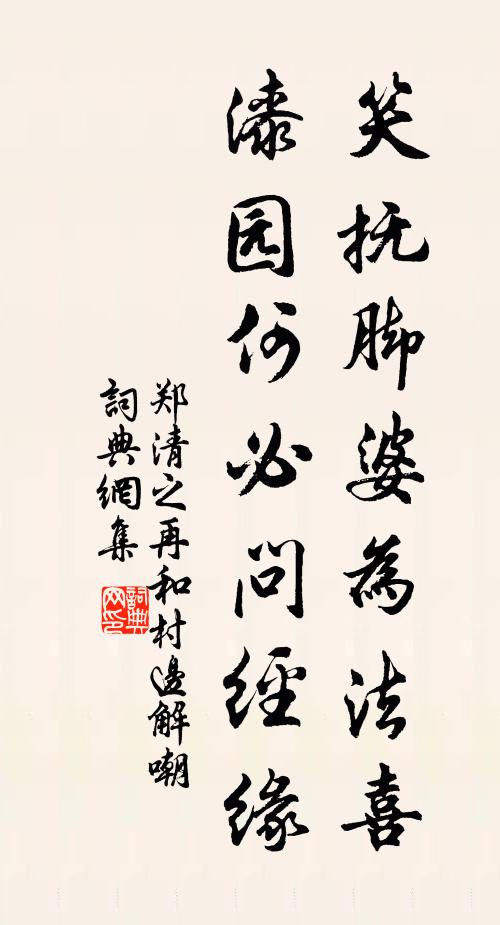 笑抚脚婆為法喜
漆园何必问經缘
郑清之再和村邊解嘲
詞典網集
詞典网印